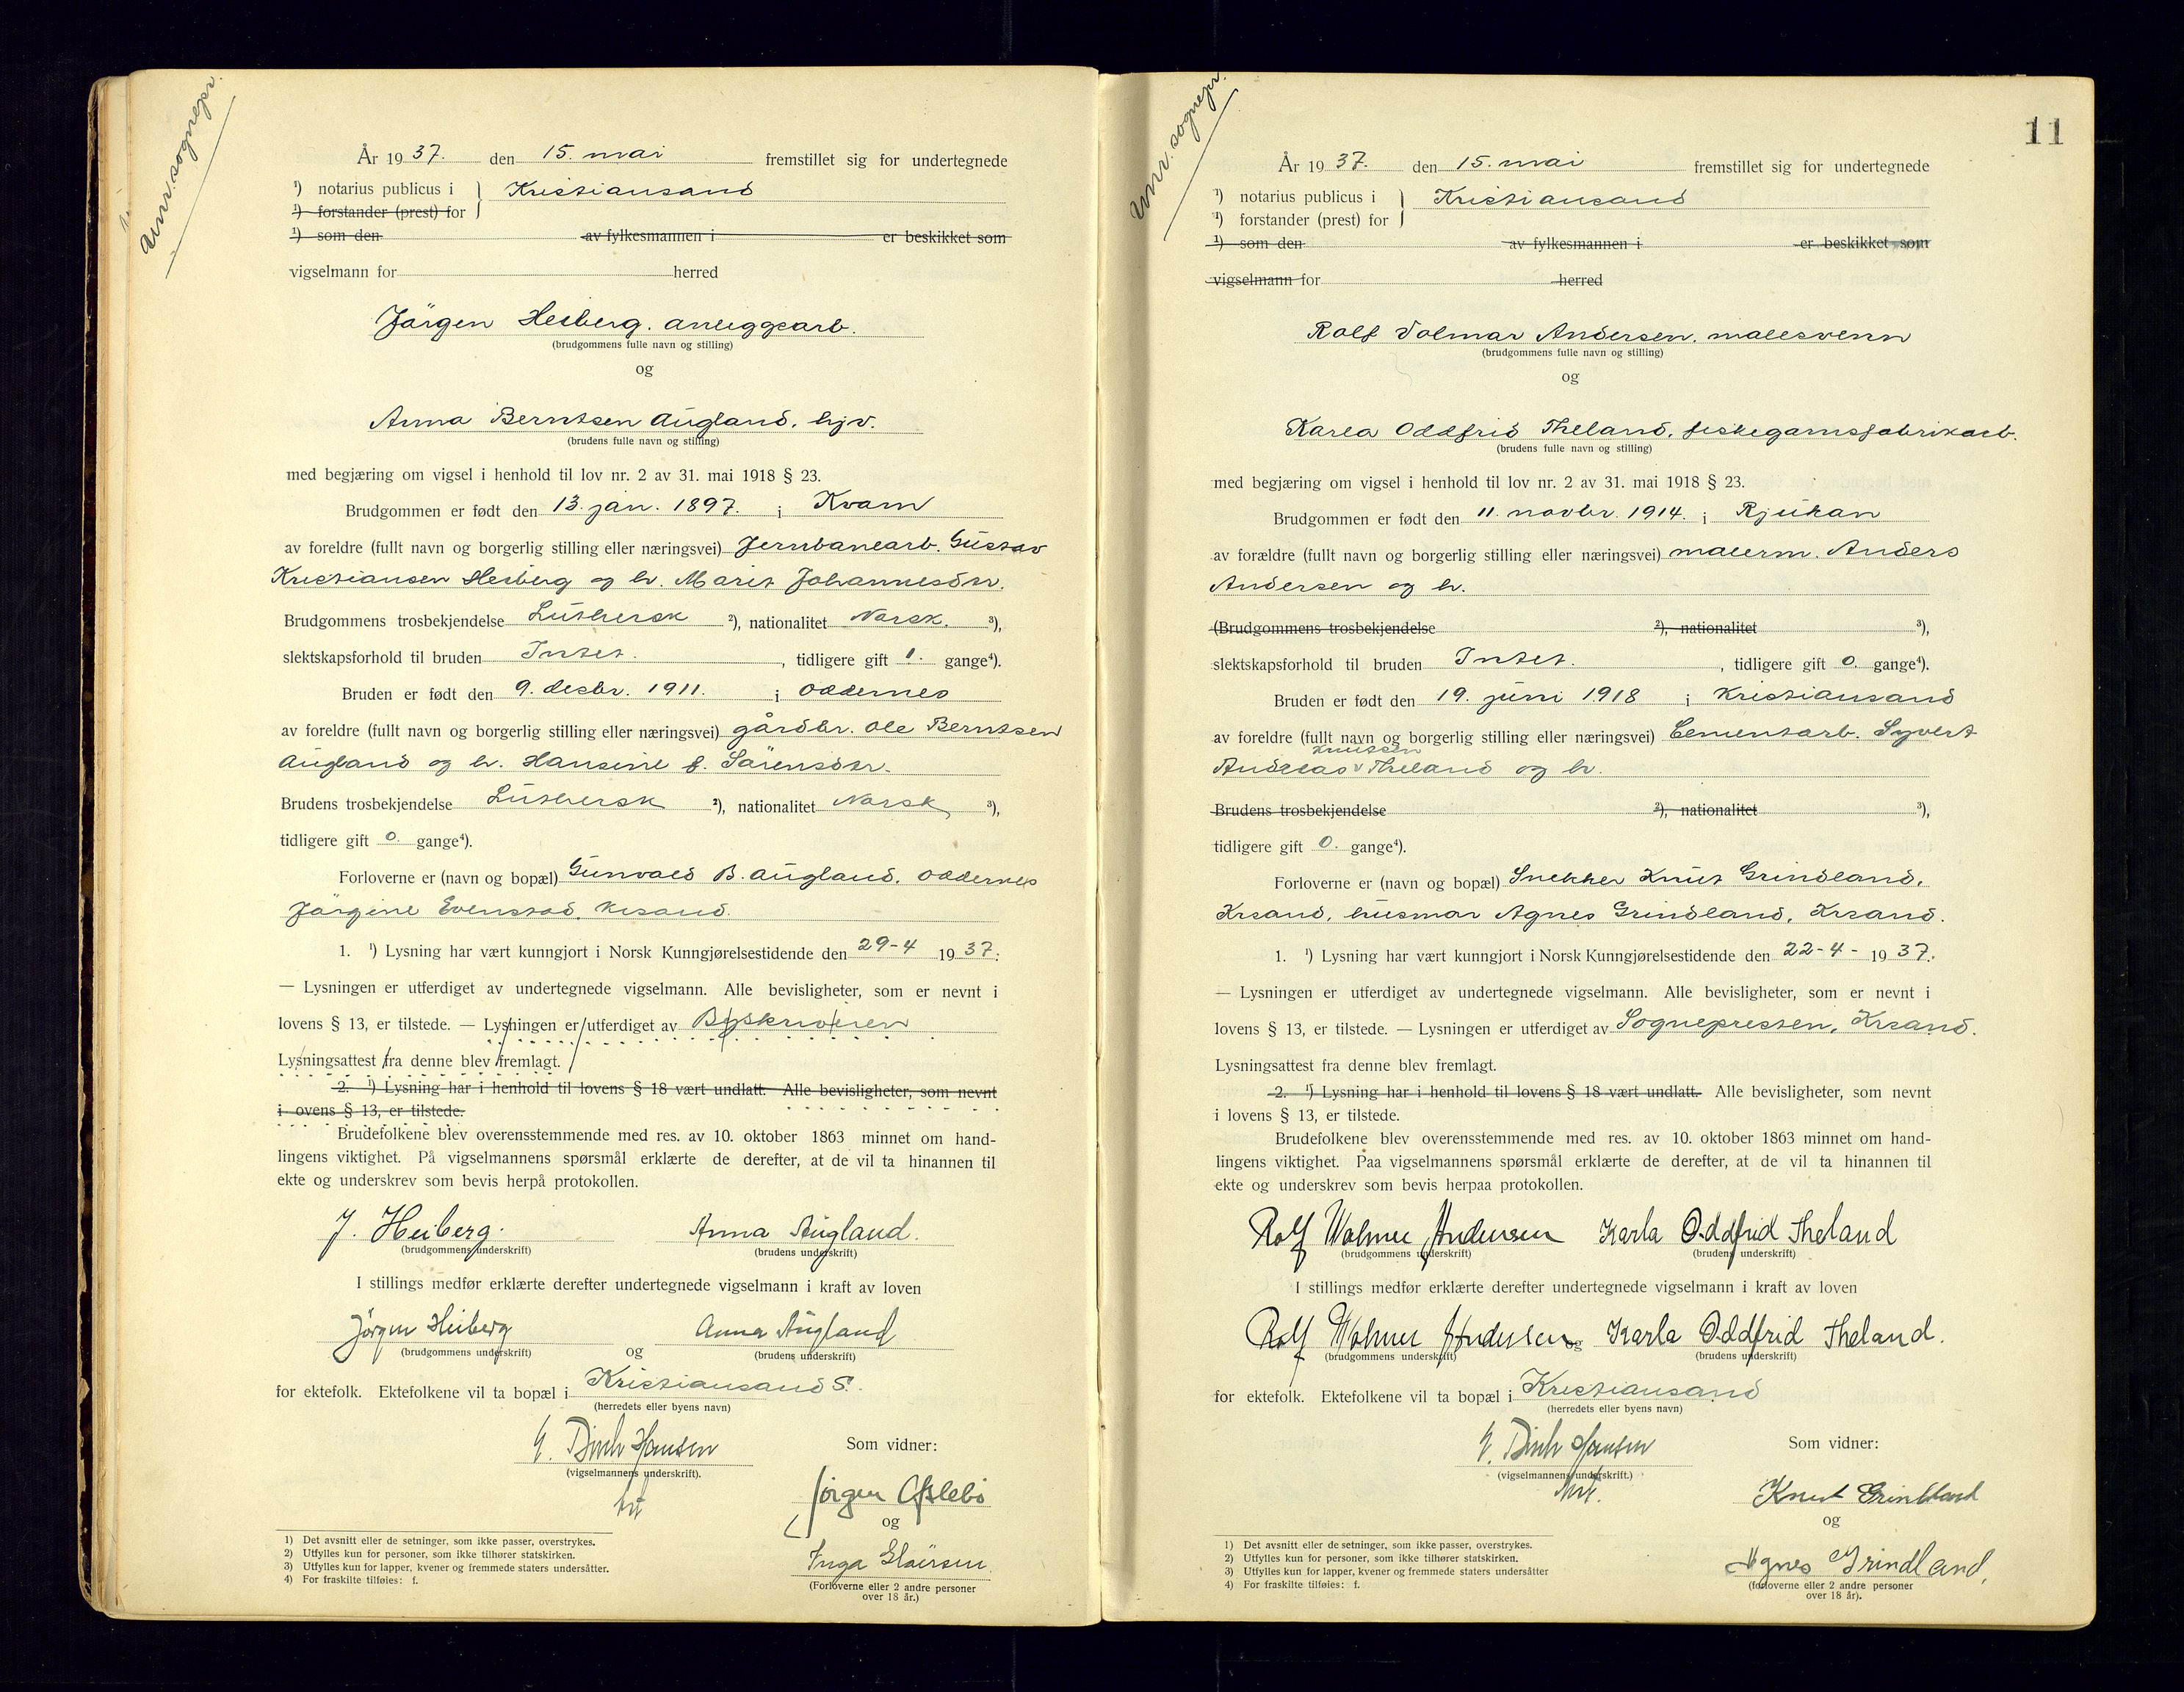 anm. sognepr.
År 1937. den 15. mai fremstillet sig for undertegnede
¹) notarius publicus i } Kristiansand
¹) forstander (prest) for
¹) som den av fylkesmannen i er beskikket som
vigselmann for herred
Jörgen Heiberg. anleggsarb.
(brudgommens fulle navn og stilling)
og
Anna Berntsen Augland, hjv.
(brudens fulle navn og stilling)
med begjæring om vigsel i henhold til lov nr. 2 av 31. mai 1918 § 23.
Brudgommen er født den 13. jan. 1897. i Kvam
av foreldre (fullt navn og borgerlig stilling eller næringsvei) Jernbanearb. Gustav
Kristiansen Heiberg og h. Marit Johannesdtr.
Brudgommens trosbekjendelse Luthersk ²), nationalitet Norsk. ³),
slektskapsforhold til bruden Intet. , tidligere gift 1. gange⁴).
Bruden er født den 9. desbr. 1911. i Oddernes
av foreldre (fullt navn og borgerlig stilling eller næringsvei) gårdbr. Ole Berntsen
Augland og h. Hansine f. Sörensdtr.
Brudens trosbekjendelse Luthersk ²), nationalitet Norsk ³),
tidligere gift 0. gange⁴).
Forloverne er (navn og bopæl) Gunvald B. Augland, Oddernes
Jörgine Evenstad, Krsand.
1. ¹) Lysning har vært kunngjort i Norsk Kunngjørelsestidende den 29-4 1937:
— Lysningen er utferdiget av undertegnede vigselmann. Alle bevisligheter, som er nevnt i
lovens § 13, er tilstede. — Lysningen er utferdiget av Byskriveren
Lysningsattest fra denne blev fremlagt.
2. ¹) Lysning har i henhold til lovens § 18 vært undlatt. Alle bevisligheter, som nevnt
i ovens § 13, er tilstede.
Brudefolkene blev overensstemmende med res. av 10. oktober 1863 minnet om hand-
lingens viktighet. På vigselmannens spørsmål erklærte de derefter, at de vil ta hinannen til
ekte og underskrev som bevis herpå protokollen.
J. Heiberg. Anna Augland.
(brudgommens underskrift) (brudens underskrift)
I stillings medfør erklærte derefter undertegnede vigselmann i kraft av loven
Jørgen Heiberg og Anna Augland
(brudgommens underskrift) (brudens underskrift)
for ektefolk. Ektefolkene vil ta bopæl i Kristiansand S.
(herredets eller byens navn)
Hansen
(vigselmannens underskrift).
Som vidner:
Jörgen
og
Inga
(Forloverne eller 2 andre personer
over 18 år.)
1) Det avsnitt eller de setninger, som ikke passer, overstrykes.
2) Utfylles kun for personer, som ikke tilhører statskirken.
3) Utfylles kun for lapper, kvener og fremmede staters undersåtter.
4) For fraskilte tilføies: f.
anm. sognepr.
11
År 1937. den 15. mai fremstillet sig for undertegnede
¹) notarius publicus i } Kristiansand
¹) forstander (prest) for
¹) som den av fylkesmannen i er beskikket som
vigselmann for herred
Rolf Volmar Andersen, malesvenn
(brudgommens fulle navn og stilling)
og
Karla Oddfrid Theland, fiskegarnsfabrikarb.
(brudens fulle navn og stilling)
med begjæring om vigsel i henhold til lov nr. 2 av 31. mai 1918 § 23.
Brudgommen er født den 11. novbr. 1914. i Rjukan
av forældre (fullt navn og borgerlig stilling eller næringsvei) malerm. Anders
Andersen og h.
(Brudgommens trosbekjendelse ²), nationalitet ³),
slektskapsforhold til bruden Intet. , tidligere gift 0. gange⁴).
Bruden er født den 19. juni 1918 i Kristiansand
av foreldre (fullt navn og borgerlig stilling eller næringsvei) Cementarb. Syvert
Knutsen
Andreas v Theland og h.
Brudens trosbekjendelse ²), nationalitet ³),
tidligere gift 0. gange⁴).
Forloverne er (navn og bopæl) Snekker Knut Grindland,
Krsand, husmor Agnes Grindland, Krsand.
1. ¹) Lysning har vært kunngjort i Norsk Kunngjørelsestidende den 22-4- 1937.
— Lysningen er utferdiget av undertegnede vigselmann. Alle bevisligheter, som er nevnt i
lovens § 13, er tilstede. — Lysningen er utferdiget av Sognepresten, Krsand.
Lysningsattest fra denne blev fremlagt.
2. ¹) Lysning har i henhold til lovens § 18 vært undlatt. Alle bevisligheter, som nevnt
i lovens § 13, er tilstede.
Brudefolkene blev overensstemmende med res. av 10. oktober 1863 minnet om hand-
lingens viktighet. Paa vigselmannens spørsmål erklærte de derefter, at de vil ta hinannen til
ekte og underskrev som bevis herpaa protokollen.
Rolf Wolmer Andersen Karla Oddfrid Theland
(brudgommens underskrift) (brudens underskrift)
I stillings medfør erklærte derefter undertegnede vigselmann i kraft av loven
Rolf Wolmer Andersen og Karla Oddfrid Theland.
(brudgommens underskrift) (brudens underskrift)
for ektefolk. Ektefolkene vil ta bopæl i Kristiansand
(herredets eller byens navn)
Hansen
(vigselmannens underskrift.)
Som vidner:
Knut Grindland
og
Agnes Grindland,
(forloverne eller 2 andre personer
over 18 år).
1) Det avsnitt eller de setninger, som ikke passer, overstrykes.
2) Utfylles kun for personer, som ikke tilhører statskirken.
3) Utfylles kun for lapper, kvener og fremmede staters undersåtter
4) For fraskilte tilføies: f.